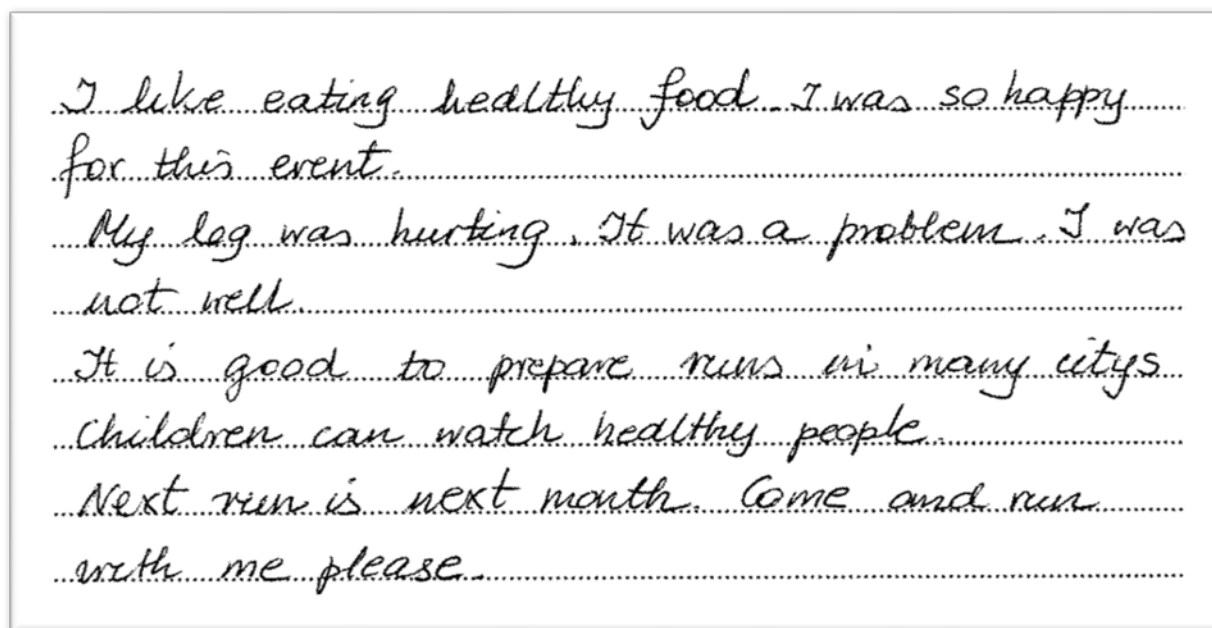 I like eating healthy food. I was so happy
for this event.
My leg was hurting. It was a problem. I was
not well.
It is good to prepare runs in many citys
Children can watch healthy people.
Next run is next month. Come and run
with me please.